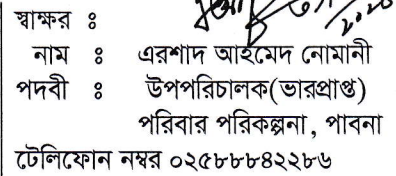 স্বাক্ষর ঃ
নাম ঃ এরশাদ আহমেদ নোমানী
পদবী ঃ উপপরিচালক(ভারপ্রাপ্ত)
পরিবার পরিকল্পনা, পাবনা
টেলিফোন নম্বর ০২৫৮৮৮৪২২৮৬